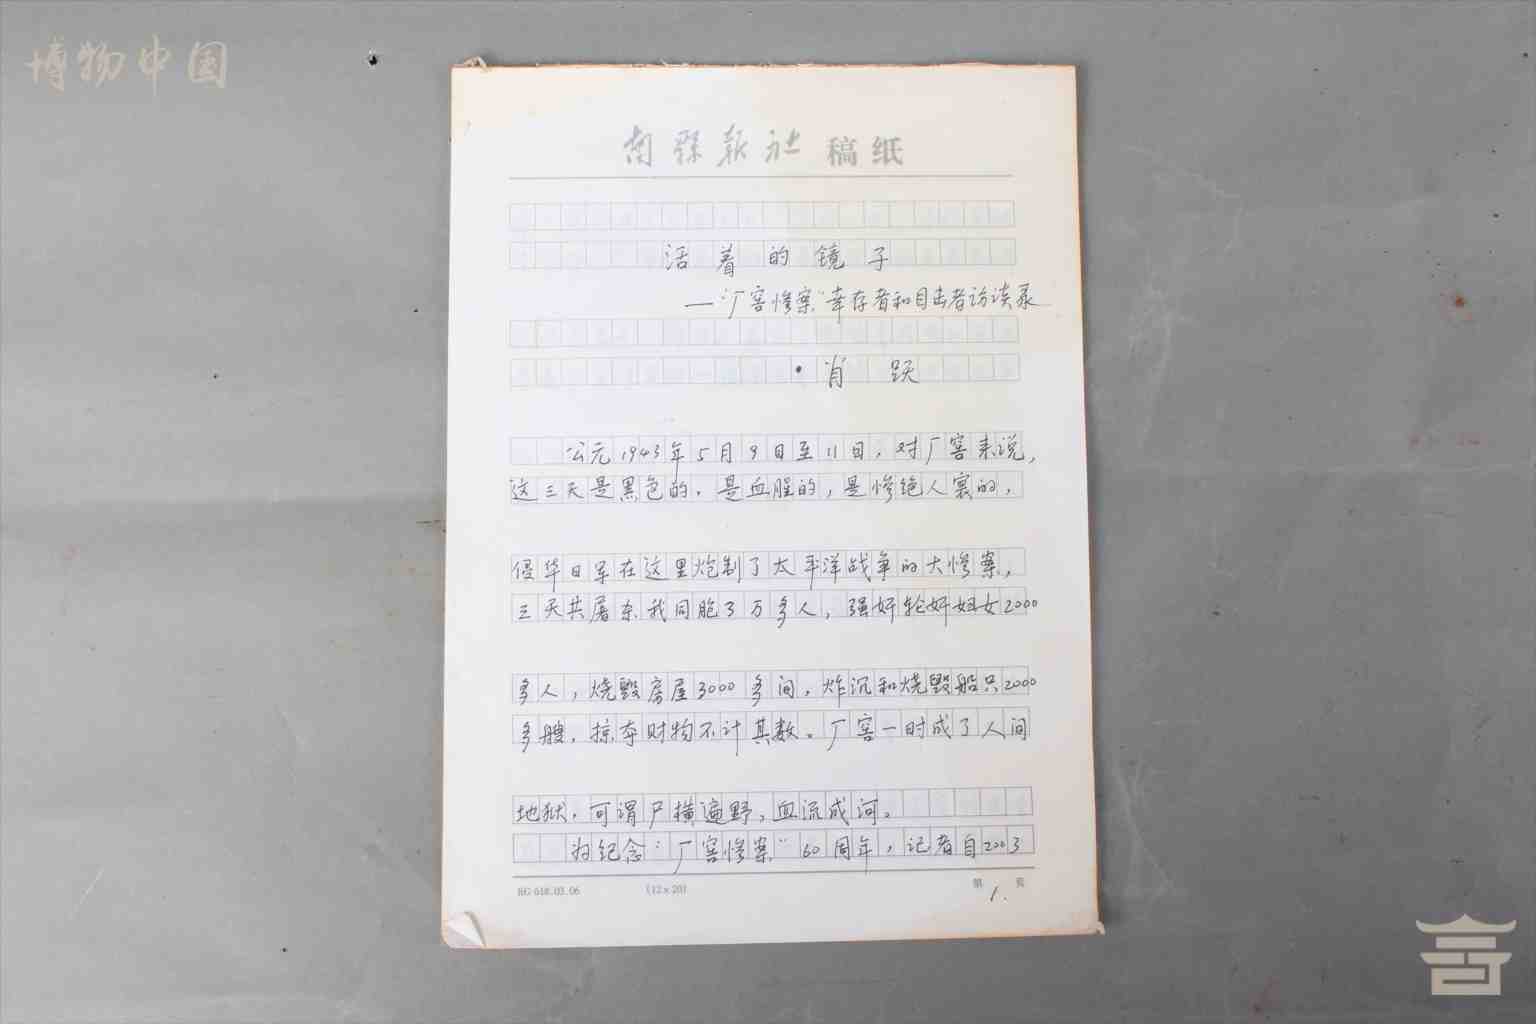 博物中国
南县报社 稿纸
活着的镜子
—“厂窖惨案”幸存者和目击者访谈录
·肖 跃
公元1943年5月9日至11日，对厂窖来说，
这三天是黑色的，是血腥的，是惨绝人寰的，
侵华日军在这里炮制了太平洋战争的大惨案，
三天共屠杀我同胞3万多人，强奸轮奸妇女2000
多人，烧毁房屋3000多间，炸沉和烧毁船只2000
多艘，掠夺财物不计其数。厂窖一时成了人间
地狱，可谓尸横遍野，血流成河。
为纪念“厂窖惨案”60周年，记者自2003
RG 618.03.06 (12×20) 第1.页